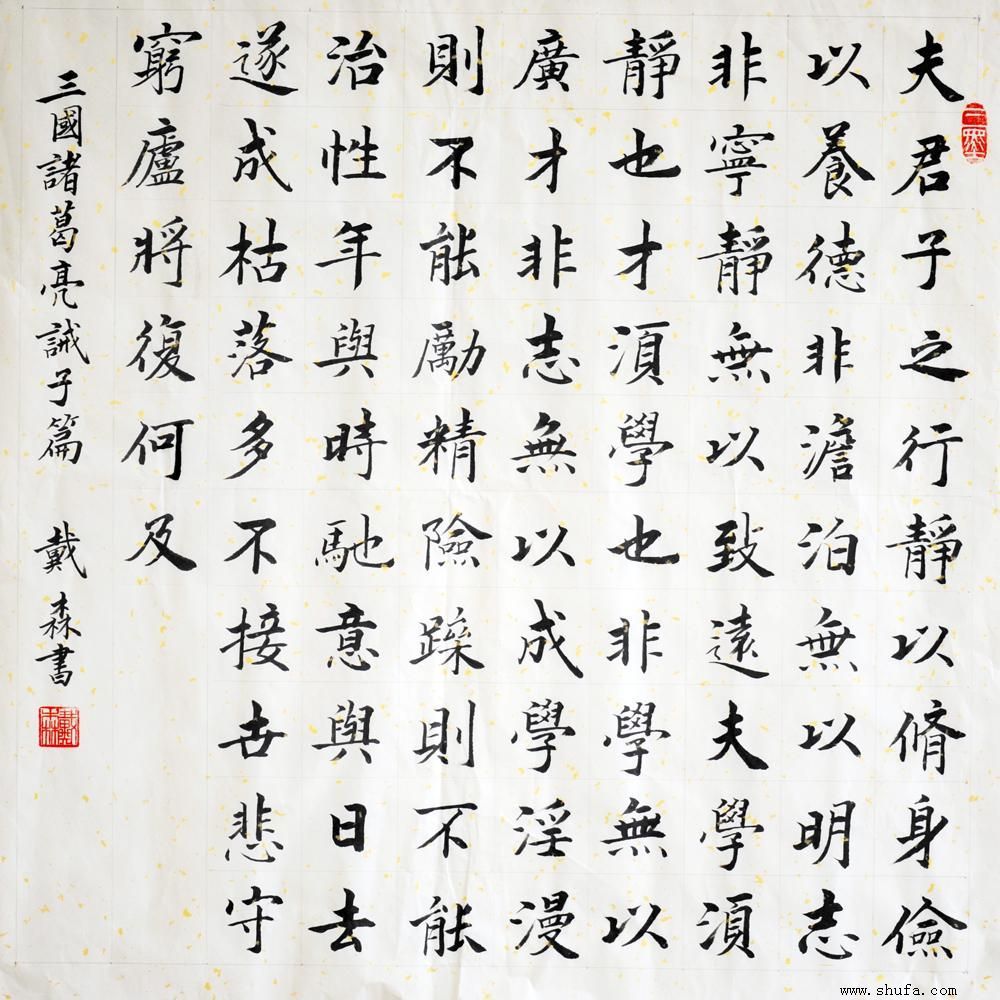 夫君子之行靜以脩身儉
以養德非澹泊無以明志
非寧靜無以致遠夫學須
靜也才須學也非學無以
廣才非志無以成學淫漫
則不能勵精險躁則不能
治性年與時馳意與日去
遂成枯落多不接世悲守
窮廬將復何及
三國諸葛亮誡子篇 戴森書
www.shufa.com